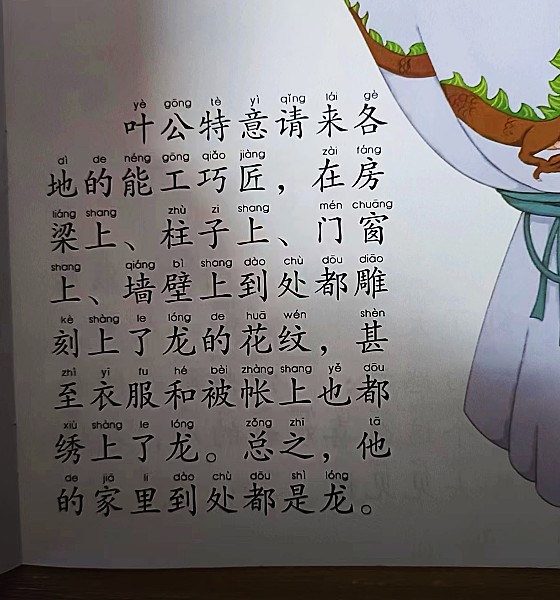 yè gōng tè yì qǐng lái gè
叶公特意请来各
dì de néng gōng qiǎo jiàng zài fáng
地的能工巧匠，在房
liáng shang zhù zi shang mén chuāng
梁上、柱子上、门窗
shang qiáng bì shang dào chù dōu diāo
上、墙壁上到处都雕
kè shàng le lóng de huā wén shèn
刻上了龙的花纹，甚
zhì yī fu hé bèi zhàng shang yě dōu
至衣服和被帐上也都
xiù shàng le lóng zǒng zhī tā
绣上了龙。总之，他
de jiā li dào chù dōu shì lóng
的家里到处都是龙。